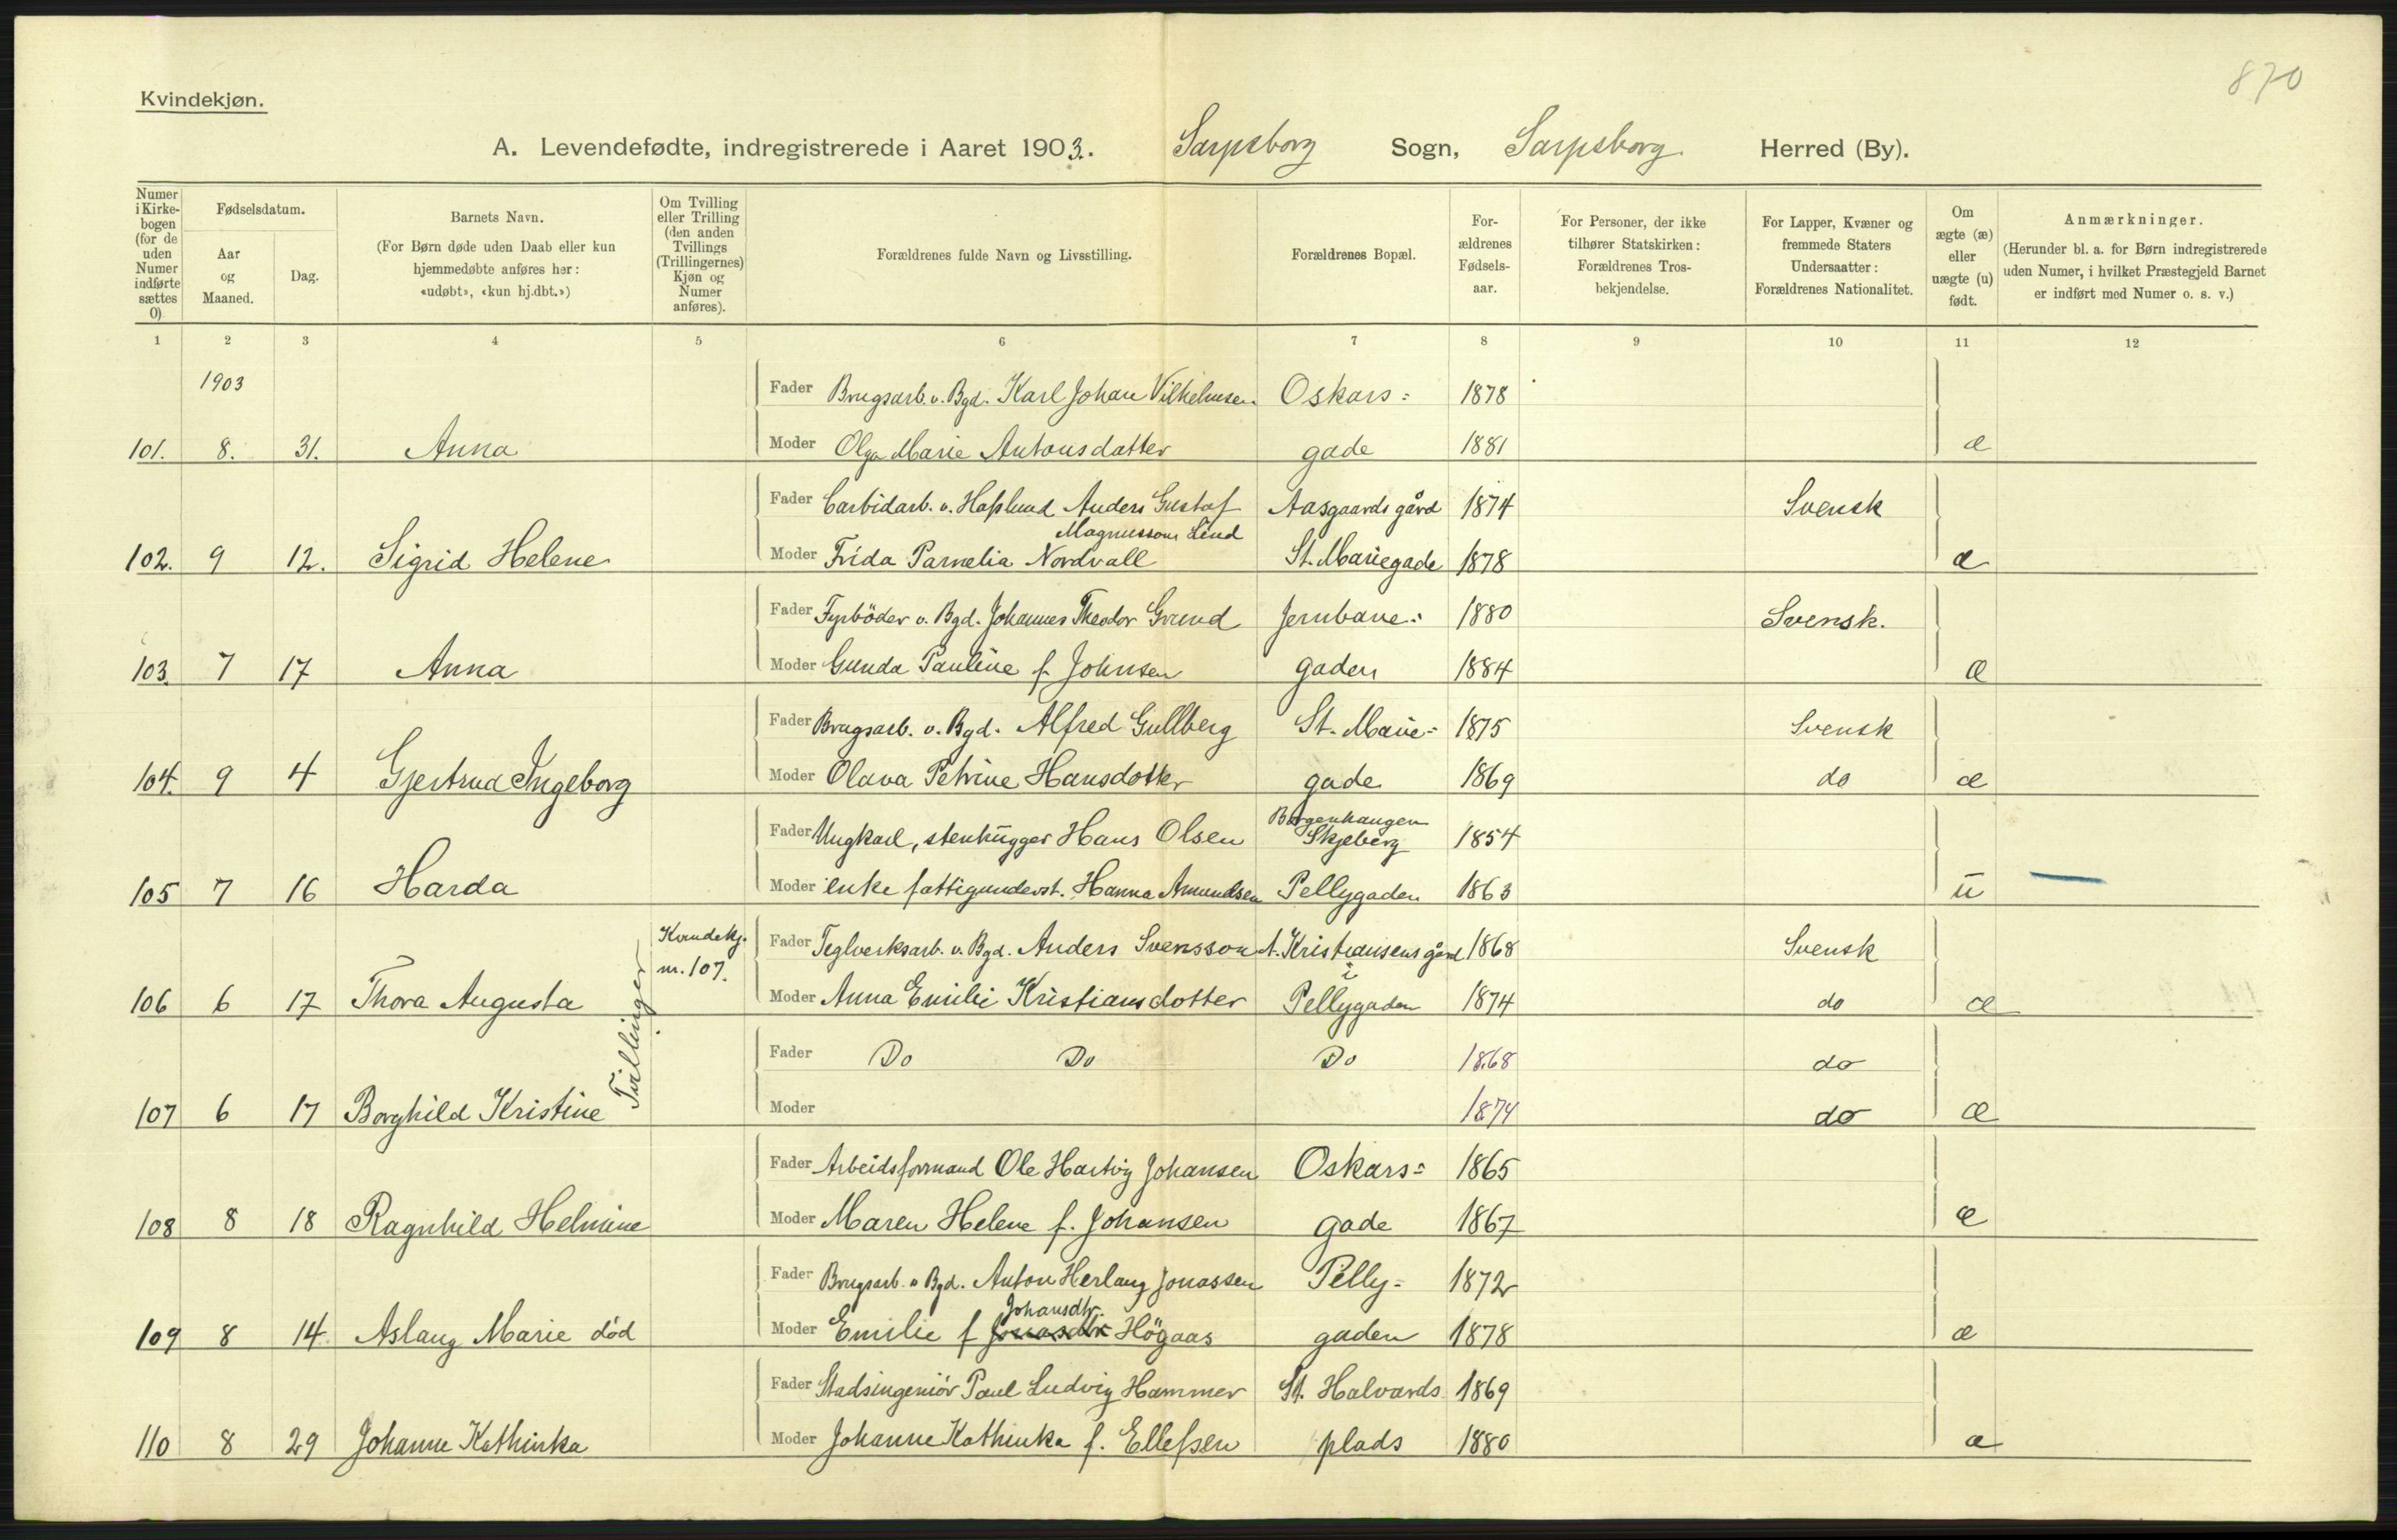 870
Kvindekjøn.
A. Levendefødte, indregistrerede i Aaret 1903. Sarpsborg Sogn, Sarpsborg Herred (By).
Numer i Kirkebogen (for de uden Numer indførte sættes 0)
Fødselsdatum.
Aar og Maaned.
Dag.
Barnets Navn.
(For Børn døde uden Daab eller kun hjemmedøbte anføres her: «udøbt», «kun hj.dbt.»)
Om Tvilling eller Trilling (den anden Tvillings (Trillingernes) Kjøn og Numer anføres).
Forældrenes fulde Navn og Livsstilling.
Forældrenes Bopæl.
For-ældrenes Fødsels-aar.
For Personer, der ikke tilhører Statskirken: Forældrenes Tros-bekjendelse.
For Lapper, Kvæner og fremmede Staters Undersaatter: Forældrenes Nationalitet.
Om ægte (æ) eller uægte (u) født.
Anmærkninger.
(Herunder bl. a. for Børn indregistrerede uden Numer, i hvilket Præstegjeld Barnet er indført med Numer o. s. v.)
1 2 3 4 5 6 7 8 9 10 11 12
1903
Fader Brugsarb. v. Bgd. Karl Johan Vilhelmsen Oskars= 1878
101. 8. 31. Anna Moder Olga Marie Antonsdatter gade 1881 æ
Fader Carbidarb. v. Hafslund Anders Gustaf Aasgaards gård 1874 Svensk
Magnusson Lind
102. 9 12. Sigrid Helene Moder Frida Parnelia Nordvall St. Mariegade 1878 æ
Fader Fyrböder v. Bgd. Johannes Theodor Grund Jernbane= 1880 Svensk.
103. 7 17 Anna Moder Gunda Pauline f. Johnsen gaden 1884 æ
Fader Brugsarb. v. Bgd. Alfred Gullberg St. Marie= 1875 Svensk
104. 9 4 Gjertrud Ingeborg Moder Olava Petrine Hansdotter gade 1869 do æ
Fader Ungkarl, stenhugger Hans Olsen Borgenhaugen Skjeberg 1854
105 7 16 Harda Moder enke fattigunderst. Hanna Amundsen Pellygaden 1863 u
Kvindekj. nr. 107.
Fader Teglverksarb. v. Bgd. Anders Svensson A. Kristiansens gård i 1868 Svensk
106 6 17 Thora Augusta Moder Anna Emilie Kristiansdotter Pellygaden 1874 do æ
Tvillinger
Fader Do Do Do 1868 do
107 6 17 Borghild Kristine Moder 1874 do æ
Fader Arbeidsformand Ole Hartvig Johansen Oskars= 1865
108 8 18 Ragnhild Helmine Moder Maren Helene f. Johansen gade 1867 æ
Fader Brugsarb. v Bgd. Anton Herlaug Jonassen Pelly= 1872
Johansdtr.
109 8 14 Aslaug Marie död Moder Emilie f Jonasdtr Högaas gaden 1878 æ
Fader Stadsingeniör Paul Ludvig Hammer St. Halvards 1869
110 8 29 Johanne Kathinka Moder Johanne Kathinka f. Ellefsen plads 1880 æ